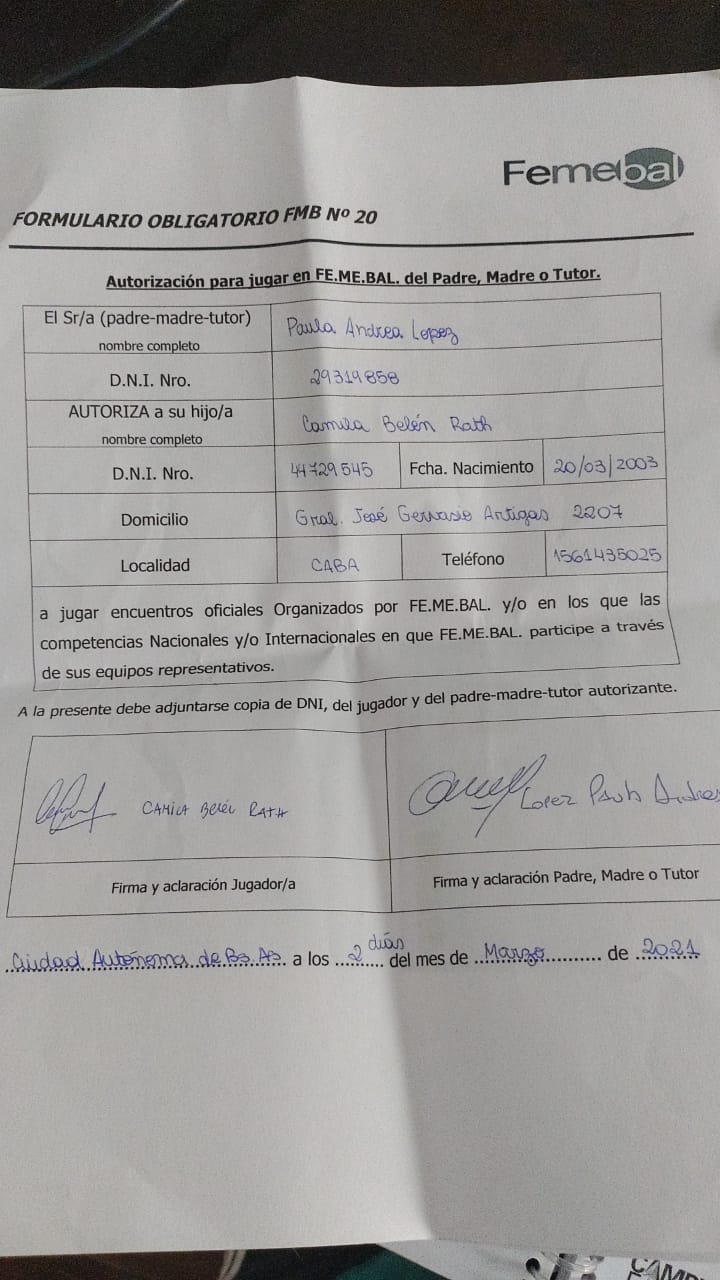 Femebal
FORMULARIO OBLIGATORIO FMB Nº 20
Autorización para jugar en FE.ME.BAL. del Padre, Madre o Tutor.
El Sr/a (padre-madre-tutor)
nombre completo
Paula Andrea Lopez
D.N.I. Nro.
29319858
AUTORIZA a su hijo/a
nombre completo
Camila Belén Rath
D.N.I. Nro.
44729545
Fcha. Nacimiento
20/03/2003
Domicilio
Gral. José Gervasio Artigas 2207
Localidad
CABA
Teléfono
1561435025
a jugar encuentros oficiales Organizados por FE.ME.BAL. y/o en los que las
competencias Nacionales y/o Internacionales en que FE.ME.BAL. participe a través
de sus equipos representativos.
A la presente debe adjuntarse copia de DNI, del jugador y del padre-madre-tutor autorizante.
CAMILA Belén RATH
Lopez Paula Andrea
Firma y aclaración Jugador/a
Firma y aclaración Padre, Madre o Tutor
Ciudad Autónoma de Bs.As. a los 2 días del mes de Marzo de 2021